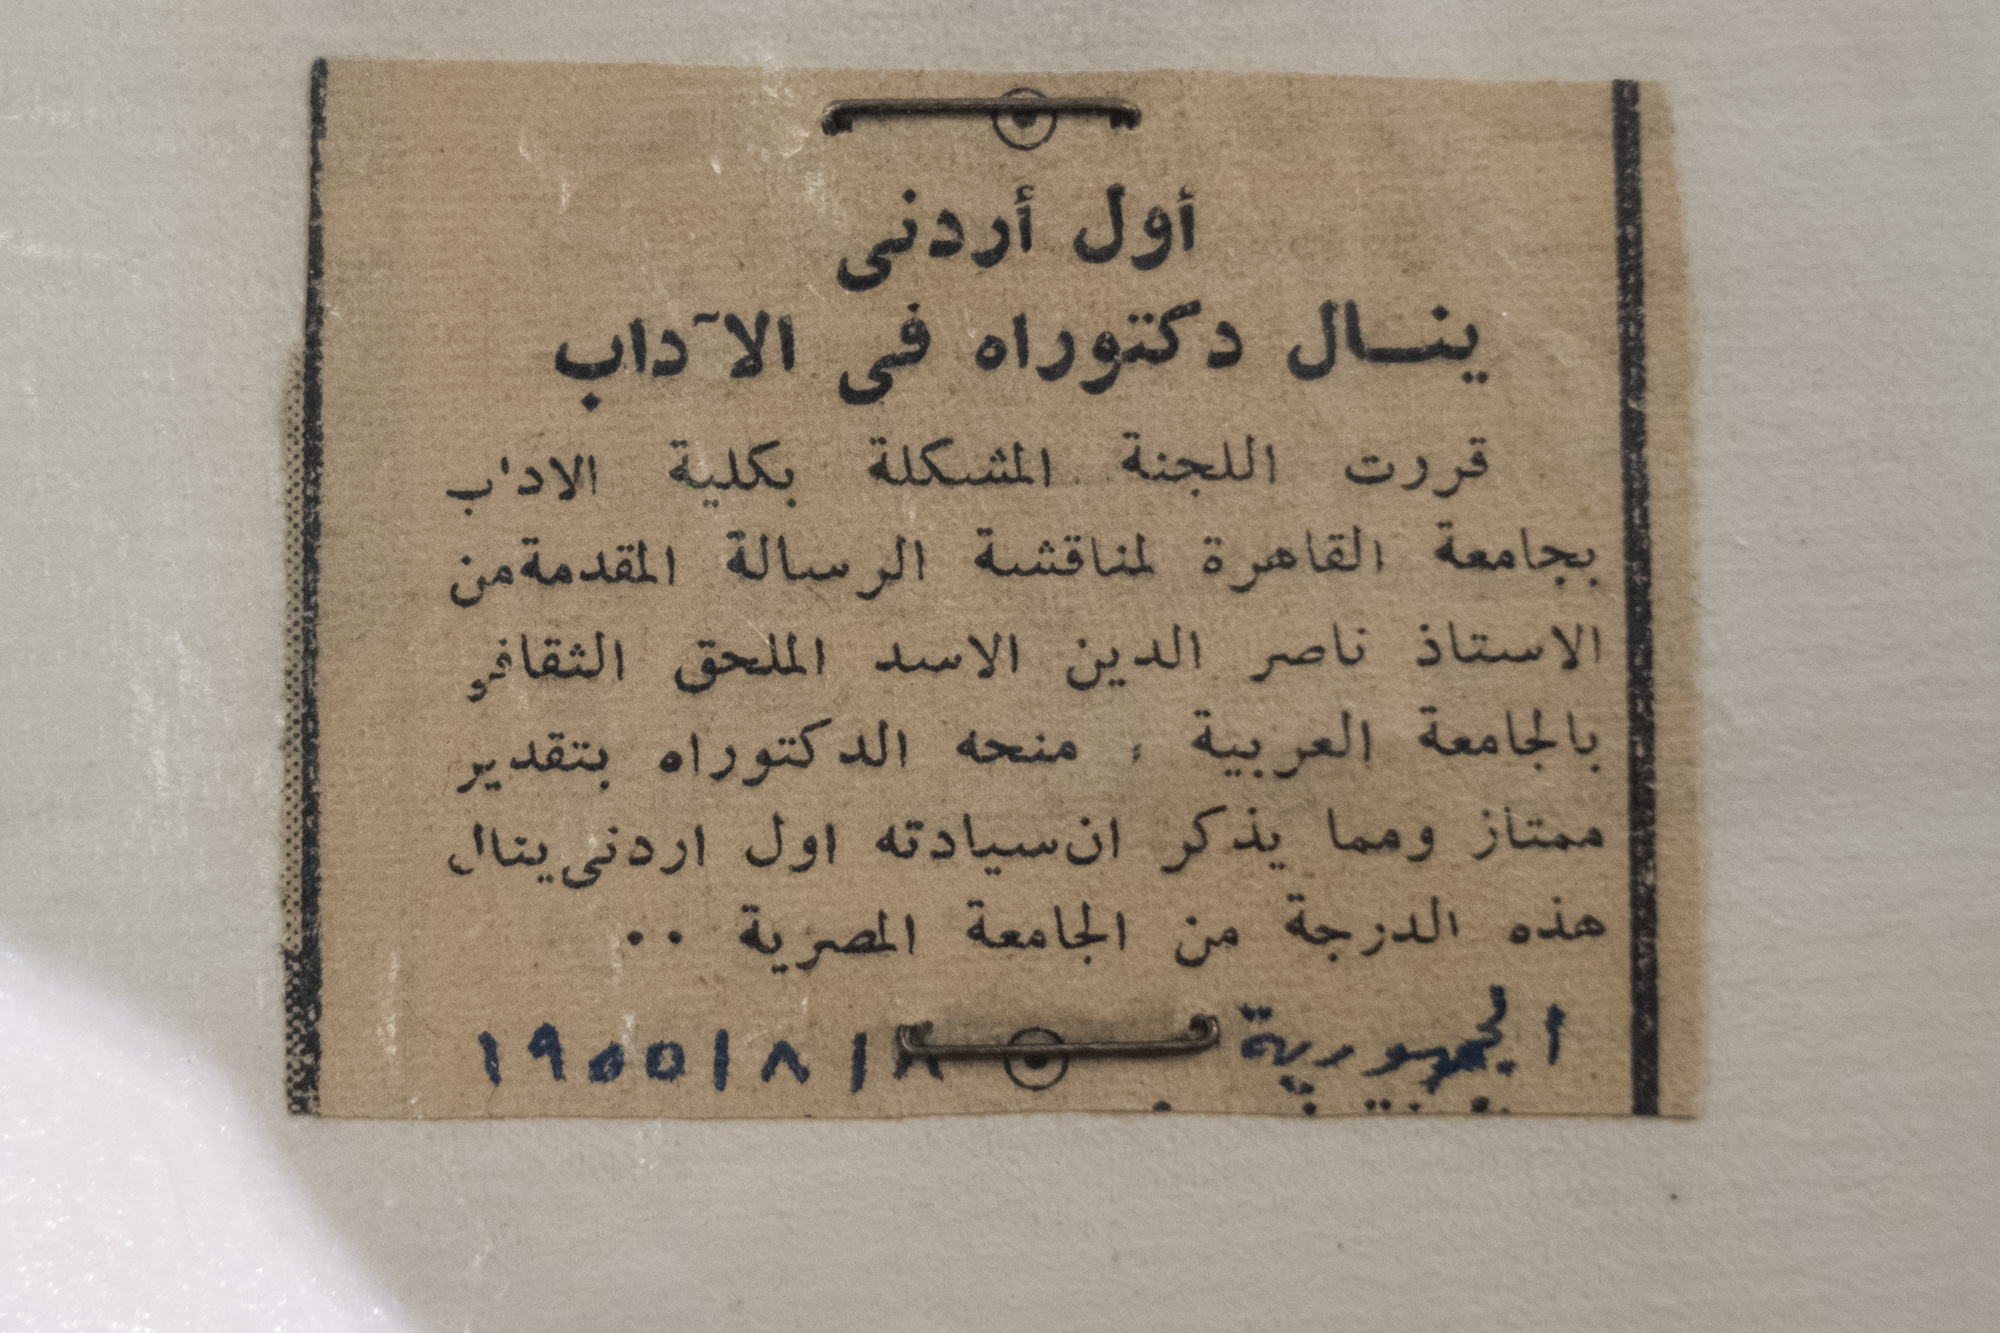 أول أردنى
ينــال دكتوراه فى الآداب
قررت اللجنة المشكلة بكلية الاداب
بجامعة القاهرة لمناقشة الرسالة المقدمة من
الاستاذ ناصر الدين الاسد الملحق الثقافى
بالجامعة العربية ، منحه الدكتوراه بتقدير
ممتاز ومما يذكر ان سيادته اول اردنى ينال
هذه الدرجة من الجامعة المصرية ٠٠
الجمهورية ٨/٨/١٩٥٥